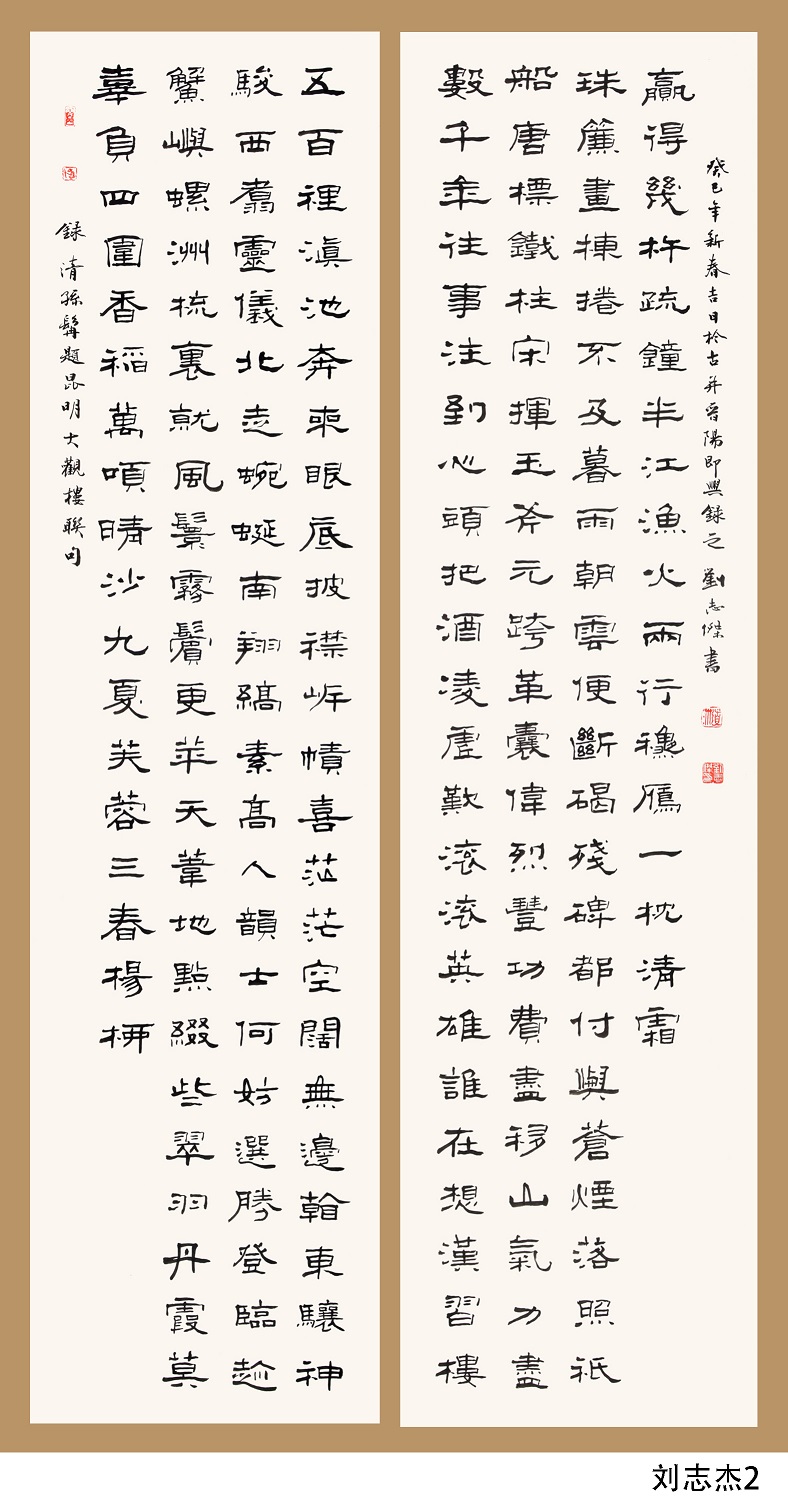 五百裡滇池奔來眼底披襟岸幘喜茫茫空闊無邊看東驤神
駿西翥靈儀北走蜿蜒南翔縞素高人韻士何妨選勝登臨趁
蟹嶼螺洲梳裹就風鬟霧鬢更苹天葦地點綴些翠羽丹霞莫
辜負四圍香稻萬頃晴沙九夏芙蓉三春楊柳
録清孫髯題昆明大觀樓聯句
數千年往事注到心頭把酒凌虛歎滚滚英雄誰在想漢習樓
船唐標鐵柱宋揮玉斧元跨革囊偉烈豐功費盡移山氣力盡
珠簾畫棟捲不及暮雨朝雲便斷碣殘碑都付與蒼煙落照祇
贏得幾杵疏鐘半江漁火兩行穐鴈一枕清霜
癸巳年新春吉日於古并晉陽即興録之 劉志傑書
刘志杰2